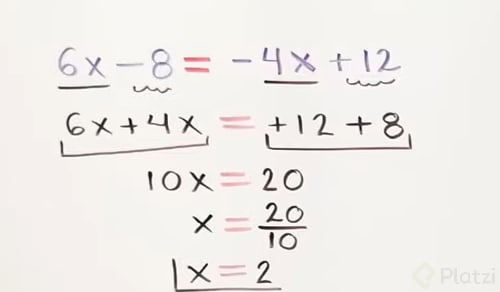 6x - 8 = - 4x + 12
6x + 4x = +12 + 8
10x = 20
x = 20/10
x = 2
Platzi